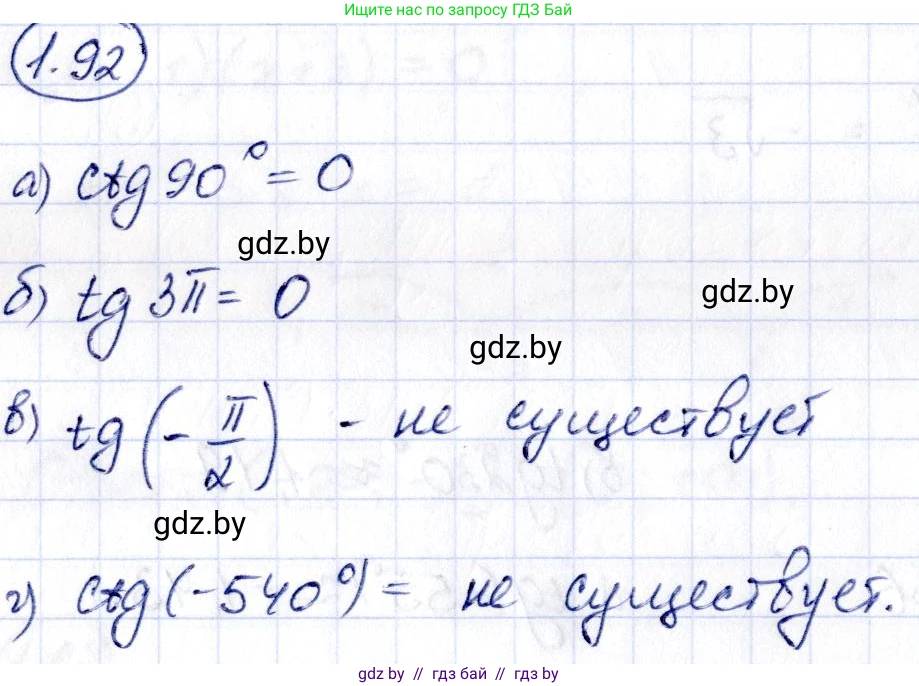 Ищите нас по запросу ГДЗ Бай
1.92
а) ctg 90° = 0
gdz.by
б) tg 3π = 0
gdz.by
gdz.by
в) tg (-π/2) - не существует
gdz.by
г) ctg (-540°) = не существует.
gdz.by // гдз бай // гдз by